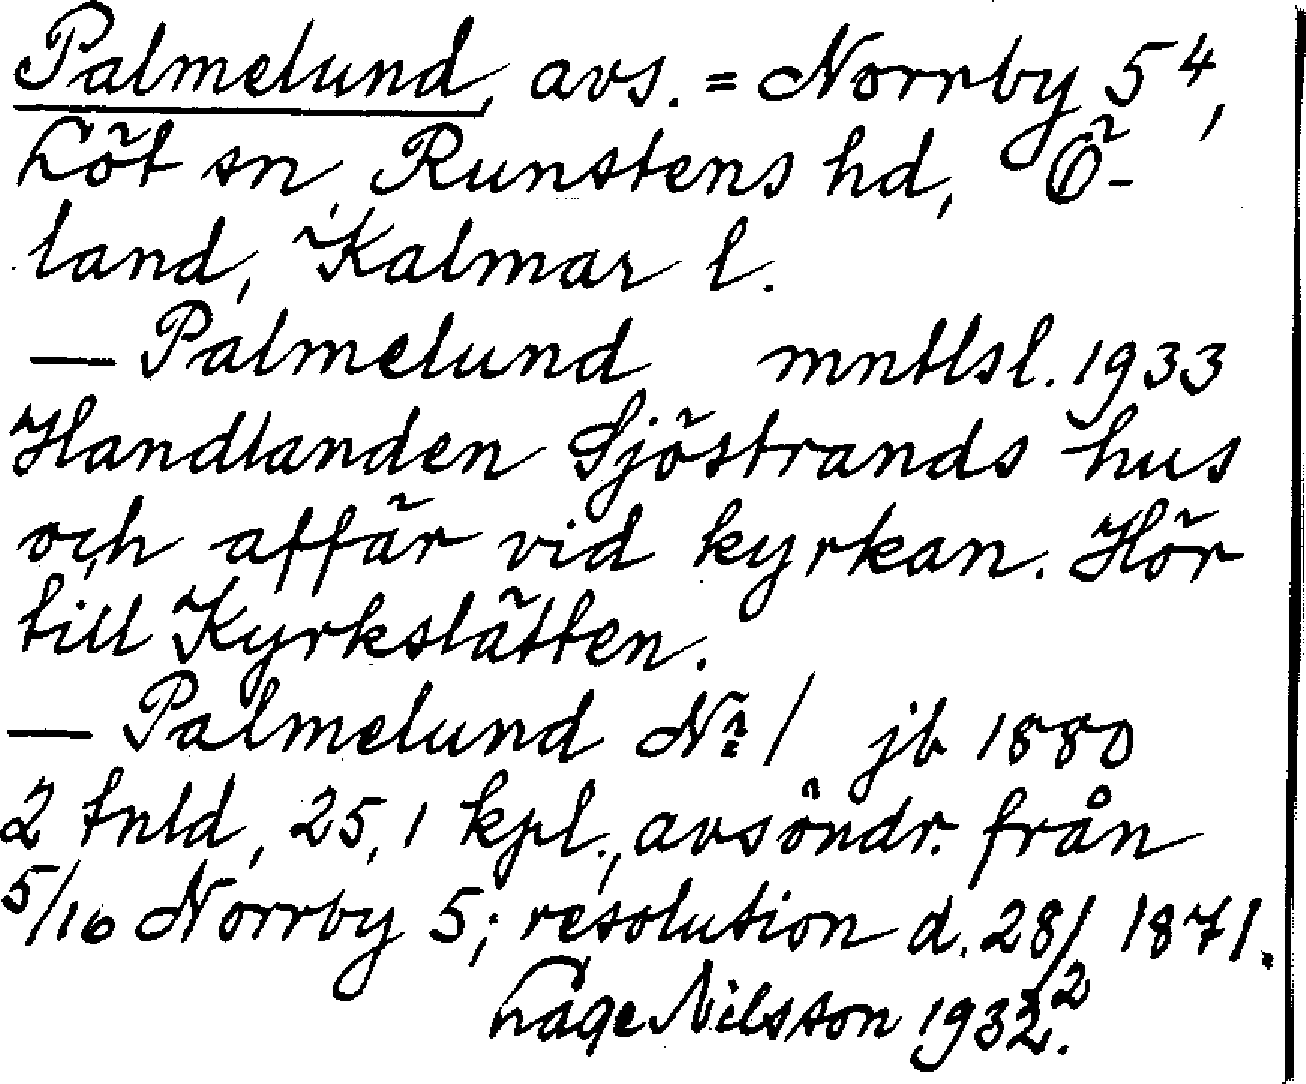 Palmelund, avs. = Norrby 5⁴,
Löt sn, Runstens hd, Ö-
land, Kalmar l.
— Palmelund mntlsl. 1933
Handlanden Sjöstrands hus
och affär vid kyrkan. Hör
till Kyrkslätten.
— Palmelund Nº 1 jb 1880
2 tnld, 25,1 kpl., avsöndr. från
5/16 Norrby 5; resolution d. 28/2 1871.
Lage Nilsson 1932.